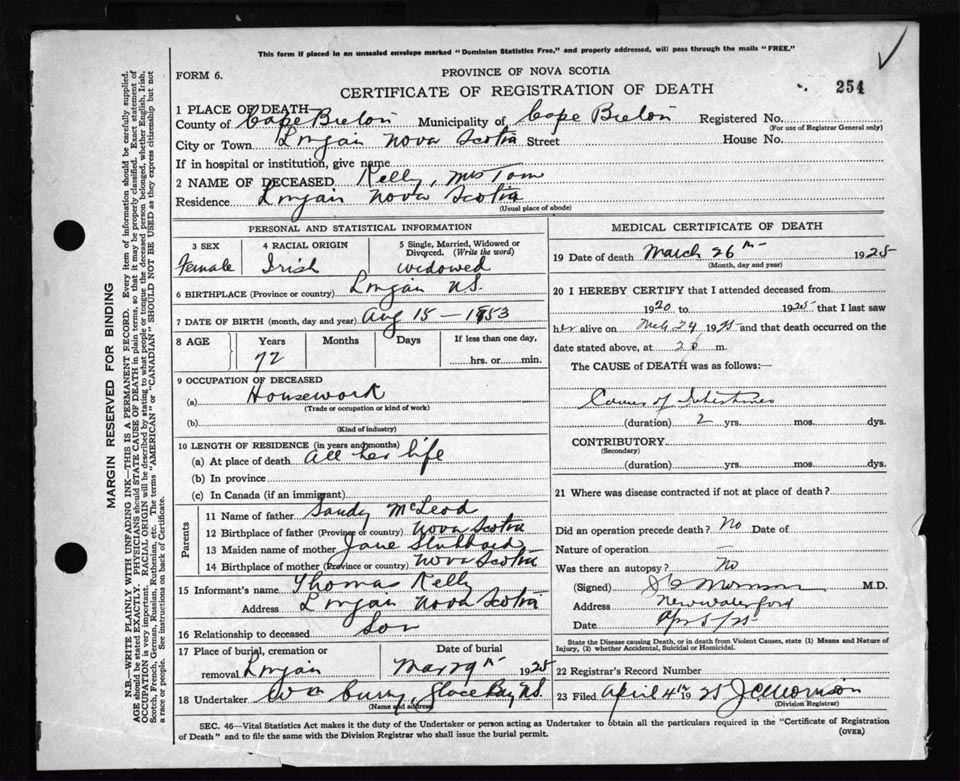 This form if placed in an unsealed envelope marked "Dominion Statistics Free," and properly addressed, will pass through the mails "FREE."
FORM 6.
PROVINCE OF NOVA SCOTIA
CERTIFICATE OF REGISTRATION OF DEATH
254
1 PLACE OF DEATH
County of Cape Breton Municipality of Cape Breton Registered No.
(For use of Registrar General only)
City or Town Lingan Nova Scotia Street House No.
If in hospital or institution, give name
2 NAME OF DECEASED Kelly, Mrs Tom
Residence Lingan Nova Scotia
(Usual place of abode)
PERSONAL AND STATISTICAL INFORMATION
3 SEX 4 RACIAL ORIGIN 5 Single, Married, Widowed or Divorced. (Write the word)
Female Irish widowed
6 BIRTHPLACE (Province or country) Lingan N.S.
7 DATE OF BIRTH (month, day and year) Aug 15 - 1853
8 AGE Years Months Days If less than one day,
72 hrs. or min.
9 OCCUPATION OF DECEASED
(a) Housework
(Trade or occupation or kind of work)
(b)
(Kind of industry)
10 LENGTH OF RESIDENCE (in years and months)
(a) At place of death all her life
(b) In province
(c) In Canada (if an immigrant)
Parents
11 Name of father Sandy McLeod
12 Birthplace of father (Province or country) Nova Scotia
13 Maiden name of mother Jane
14 Birthplace of mother (Province or country) Nova Scotia
15 Informant's name Thomas Kelly
Address Lingan Nova Scotia
16 Relationship to deceased Son
17 Place of burial, cremation or removal Lingan
Date of burial 1925
18 Undertaker Wm Curry, Glace Bay N.S.
(Name and address)
MEDICAL CERTIFICATE OF DEATH
19 Date of death March 26th 1925
(Month, day and year)
20 I HEREBY CERTIFY that I attended deceased from
1920 to 1925 that I last saw
her alive on 24 1925 and that death occurred on
date stated above, at m.
The CAUSE of DEATH was as follows:—
of Intestines
(duration) 2 yrs. mos. dys.
CONTRIBUTORY
(Secondary)
(duration) yrs. mos. dys.
21 Where was disease contracted if not at place of death?
Did an operation precede death? No Date of
Nature of operation —
Was there an autopsy? No
(Signed) J C Morrison M.D.
Address New Waterford
Date Apr 5/25
State the Disease causing Death, or in death from Violent Causes, state (1) Means and Nature of Injury, (2) whether Accidental, Suicidal or Homicidal.
22 Registrar's Record Number
23 Filed April 4th 1925 J C Morrison
(Division Registrar)
SEC. 46—Vital Statistics Act makes it the duty of the Undertaker or person acting as Undertaker to obtain all the particulars required in the "Certificate of Registration
of Death" and to file the same with the Division Registrar who shall issue the burial permit.
(OVER)
MARGIN RESERVED FOR BINDING
N.B.—WRITE PLAINLY WITH UNFADING INK—THIS IS A PERMANENT RECORD. Every item of information should be carefully supplied.
AGE should be stated EXACTLY. PHYSICIANS should STATE CAUSE OF DEATH in plain terms, so that it may be properly classified. Exact statement of
OCCUPATION is very important. RACIAL ORIGIN will be described by stating to what people or tongue the deceased person belonged, whether English, Irish,
Scotch, French, German, Russian, Ruthenian, etc. The terms "AMERICAN" or "CANADIAN" SHOULD NOT BE USED as they express citizenship but not
a race or people. See instructions on back of Certificate.